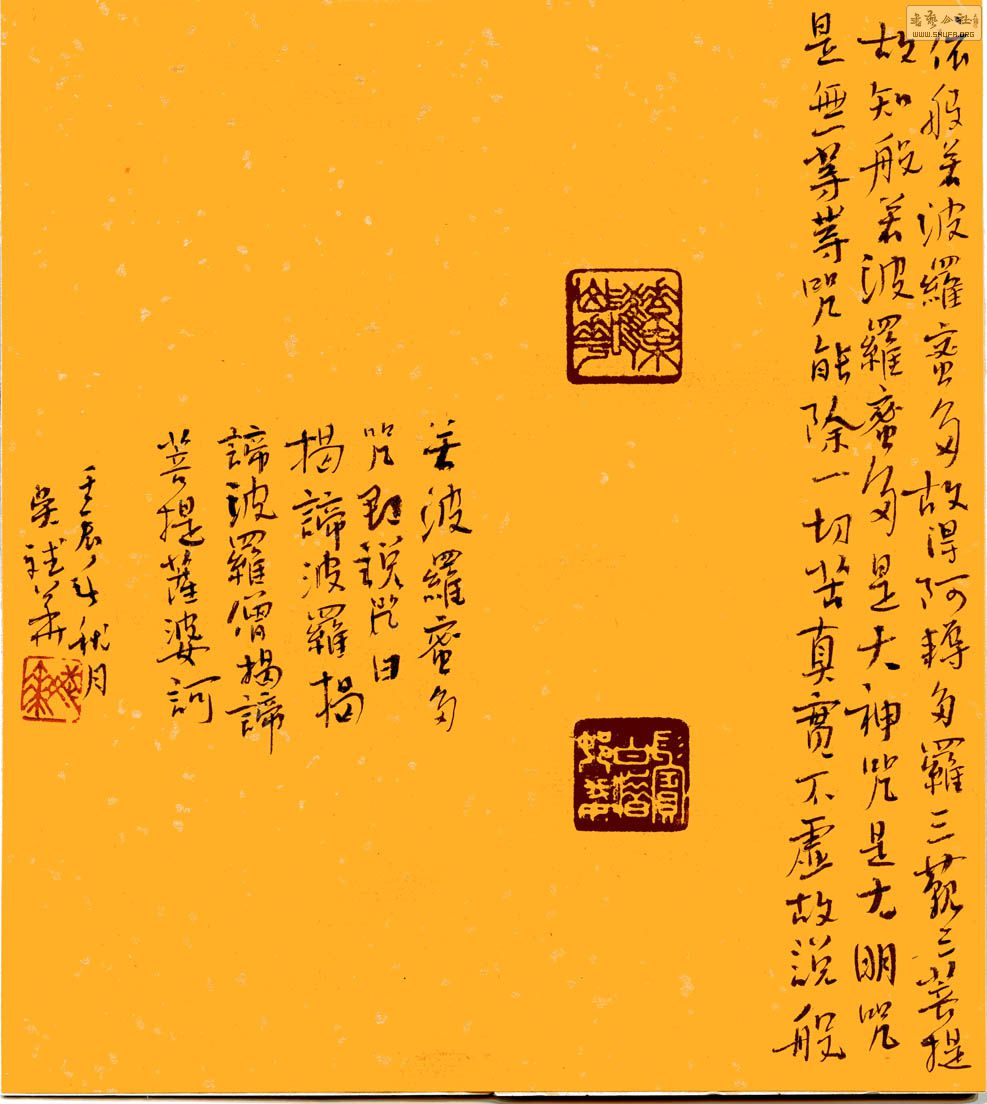 依般若波羅蜜多故得阿耨多羅三藐三菩提
故知般若波羅蜜多是大神咒是大明咒
是無等等咒能除一切苦真實不虛故說般
若波羅蜜多
咒即說咒曰
揭諦波羅揭
諦波羅僧揭諦
菩提薩婆訶
壬辰年秋月
WWW.SHUFA.ORG